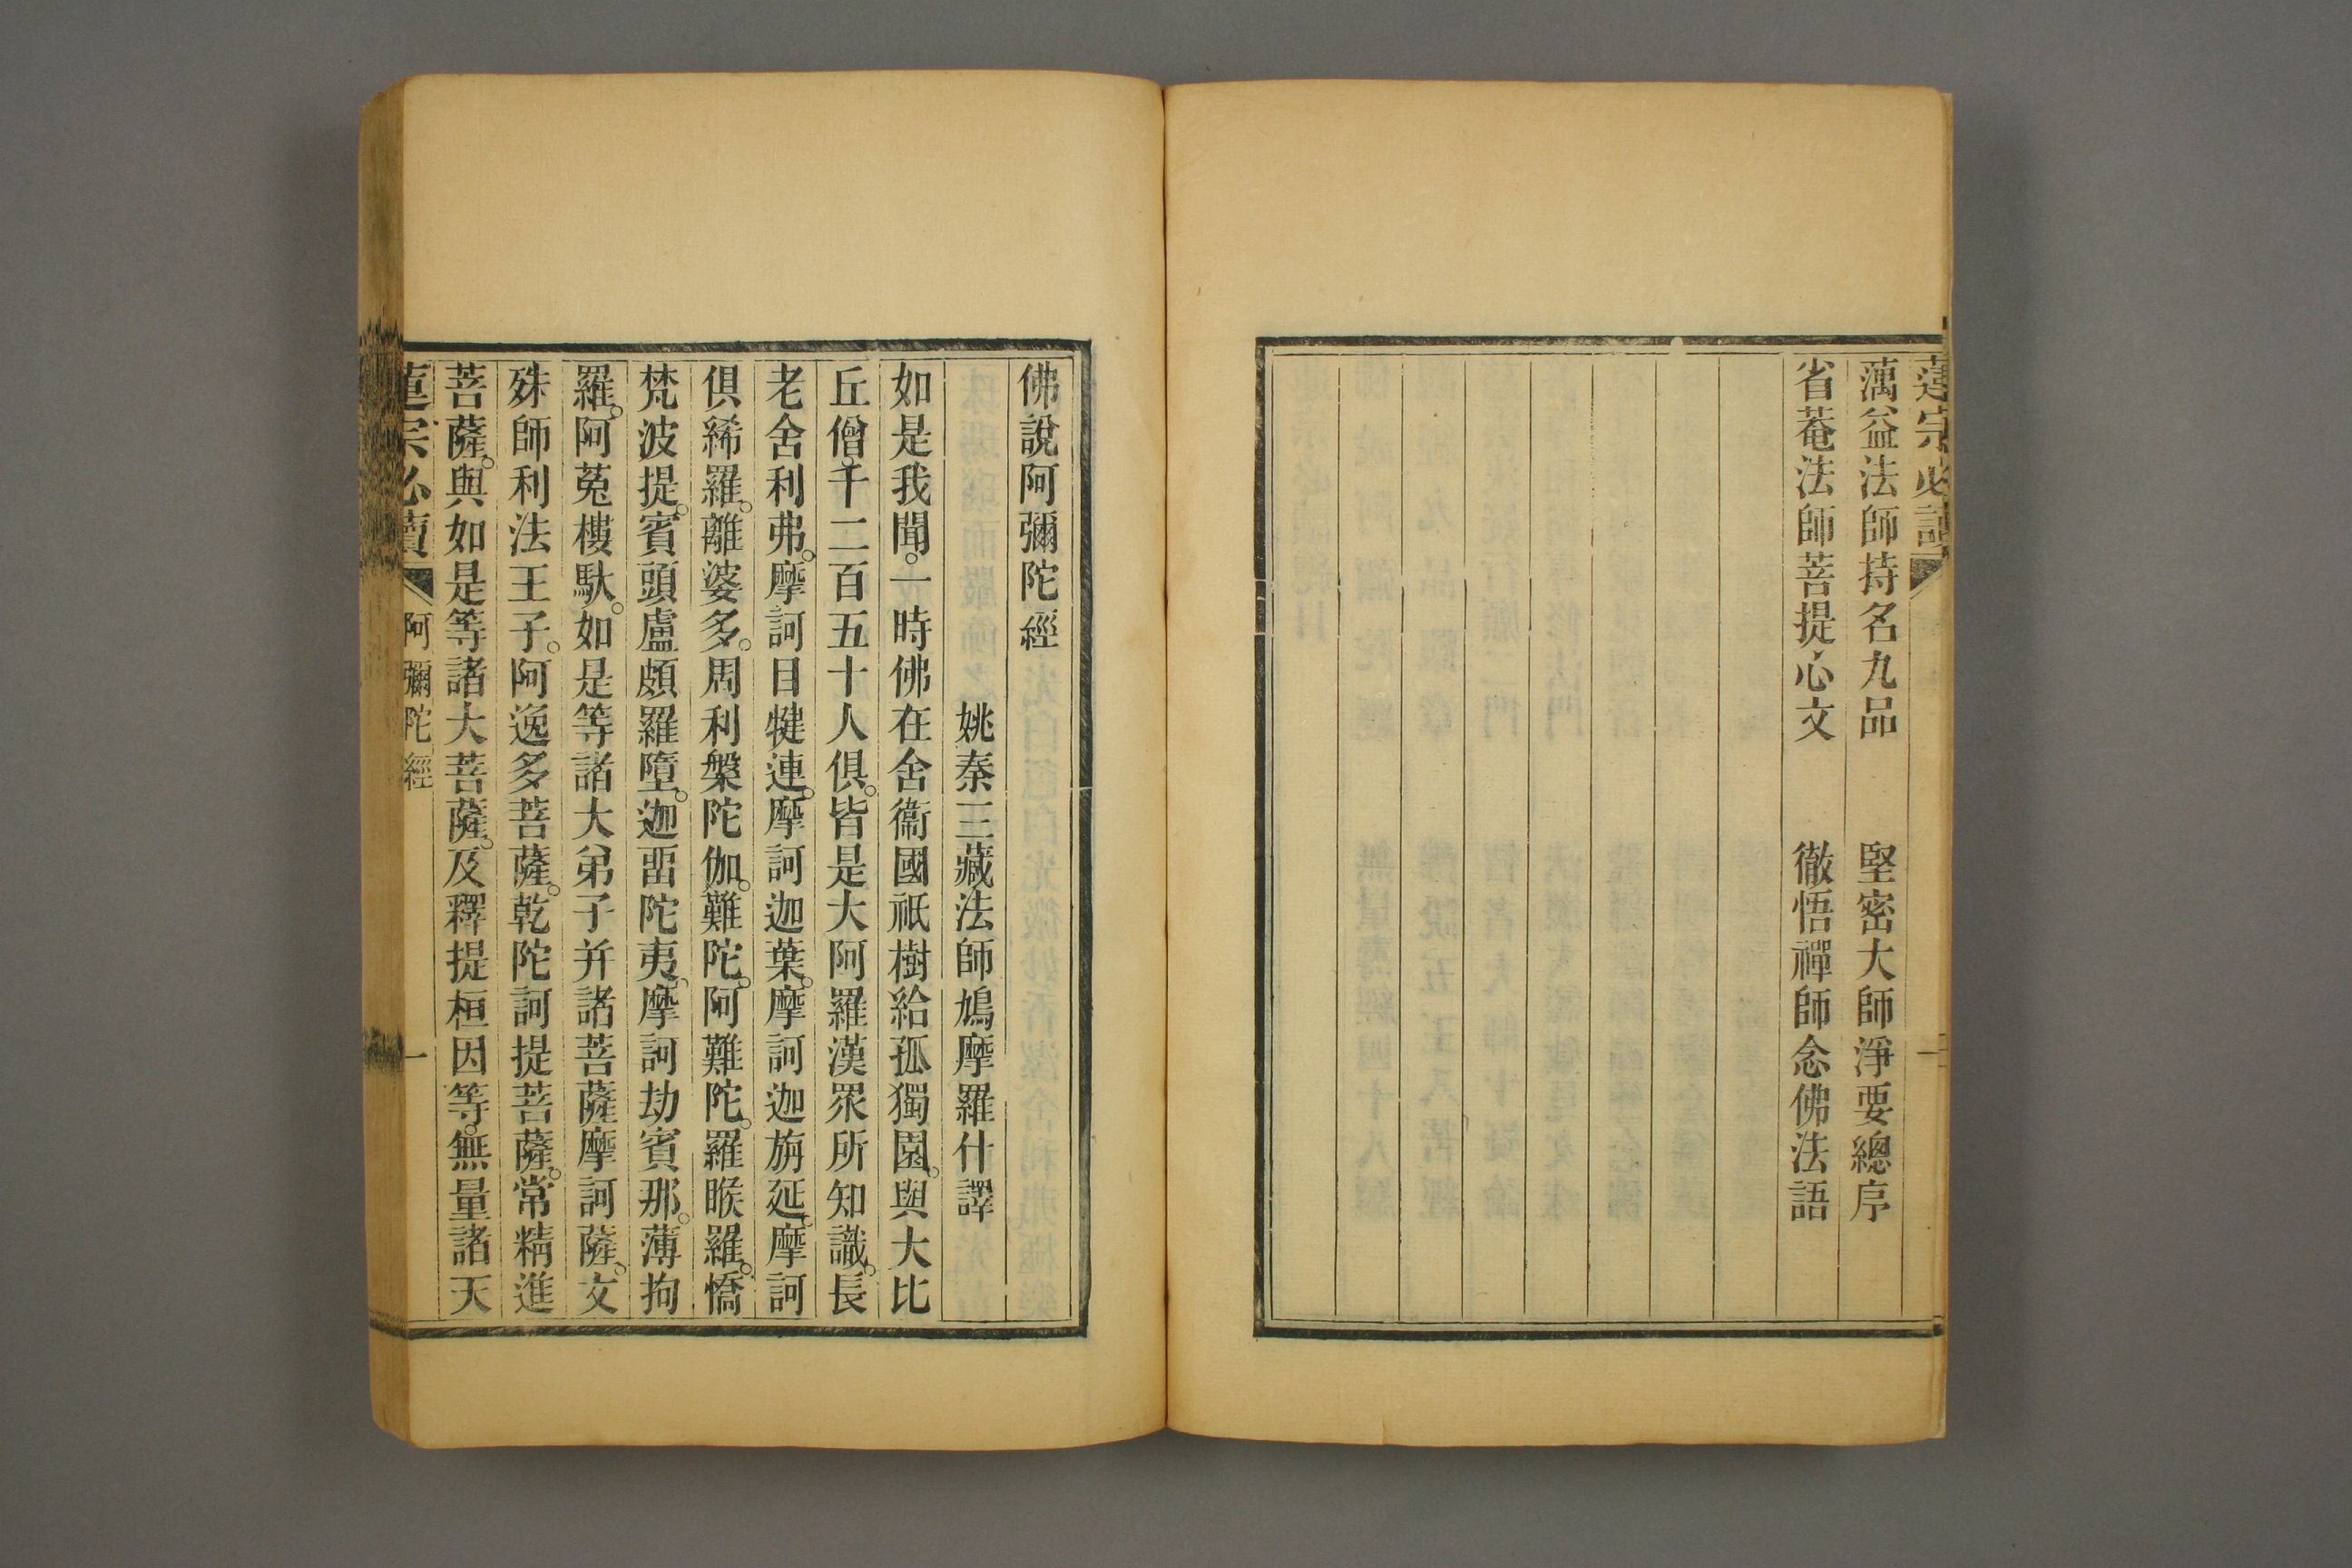 蓮宗必讀
蕅益法師持名九品　堅密大師淨要總序
省菴法師菩提心文　徹悟禪師念佛法語
佛說阿彌陀經
姚秦三藏法師鳩摩羅什譯
如是我聞。一時佛在舍衞國祇樹給孤獨園。與大比
丘僧。千二百五十人俱。皆是大阿羅漢眾所知識。長
老舍利弗。摩訶目犍連。摩訶迦葉。摩訶迦旃延。摩訶
俱絺羅。離婆多。周利槃陀伽。難陀。阿難陀。羅睺羅。憍
梵波提。賓頭盧頗羅墮。迦畱陀夷。摩訶劫賓那。薄拘
羅。阿㝹樓馱。如是等諸大弟子并諸菩薩摩訶薩。文
殊師利法王子。阿逸多菩薩。乾陀訶提菩薩。常精進
菩薩。與如是等諸大菩薩。及釋提桓因等。無量諸天
蓮宗必讀　阿彌陀經　一